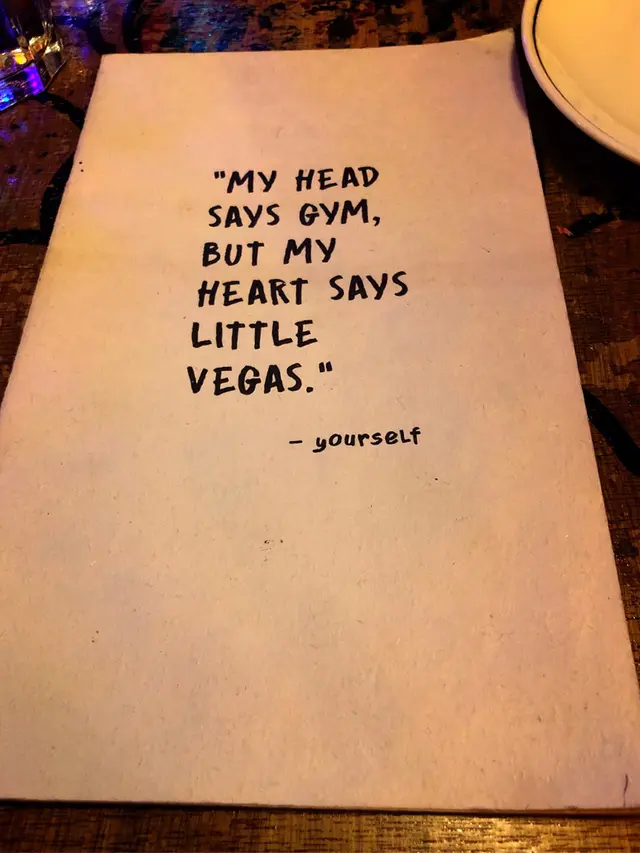 "MY HEAD
SAYS GYM,
BUT MY
HEART SAYS
LITTLE
VEGAS."
– yourself